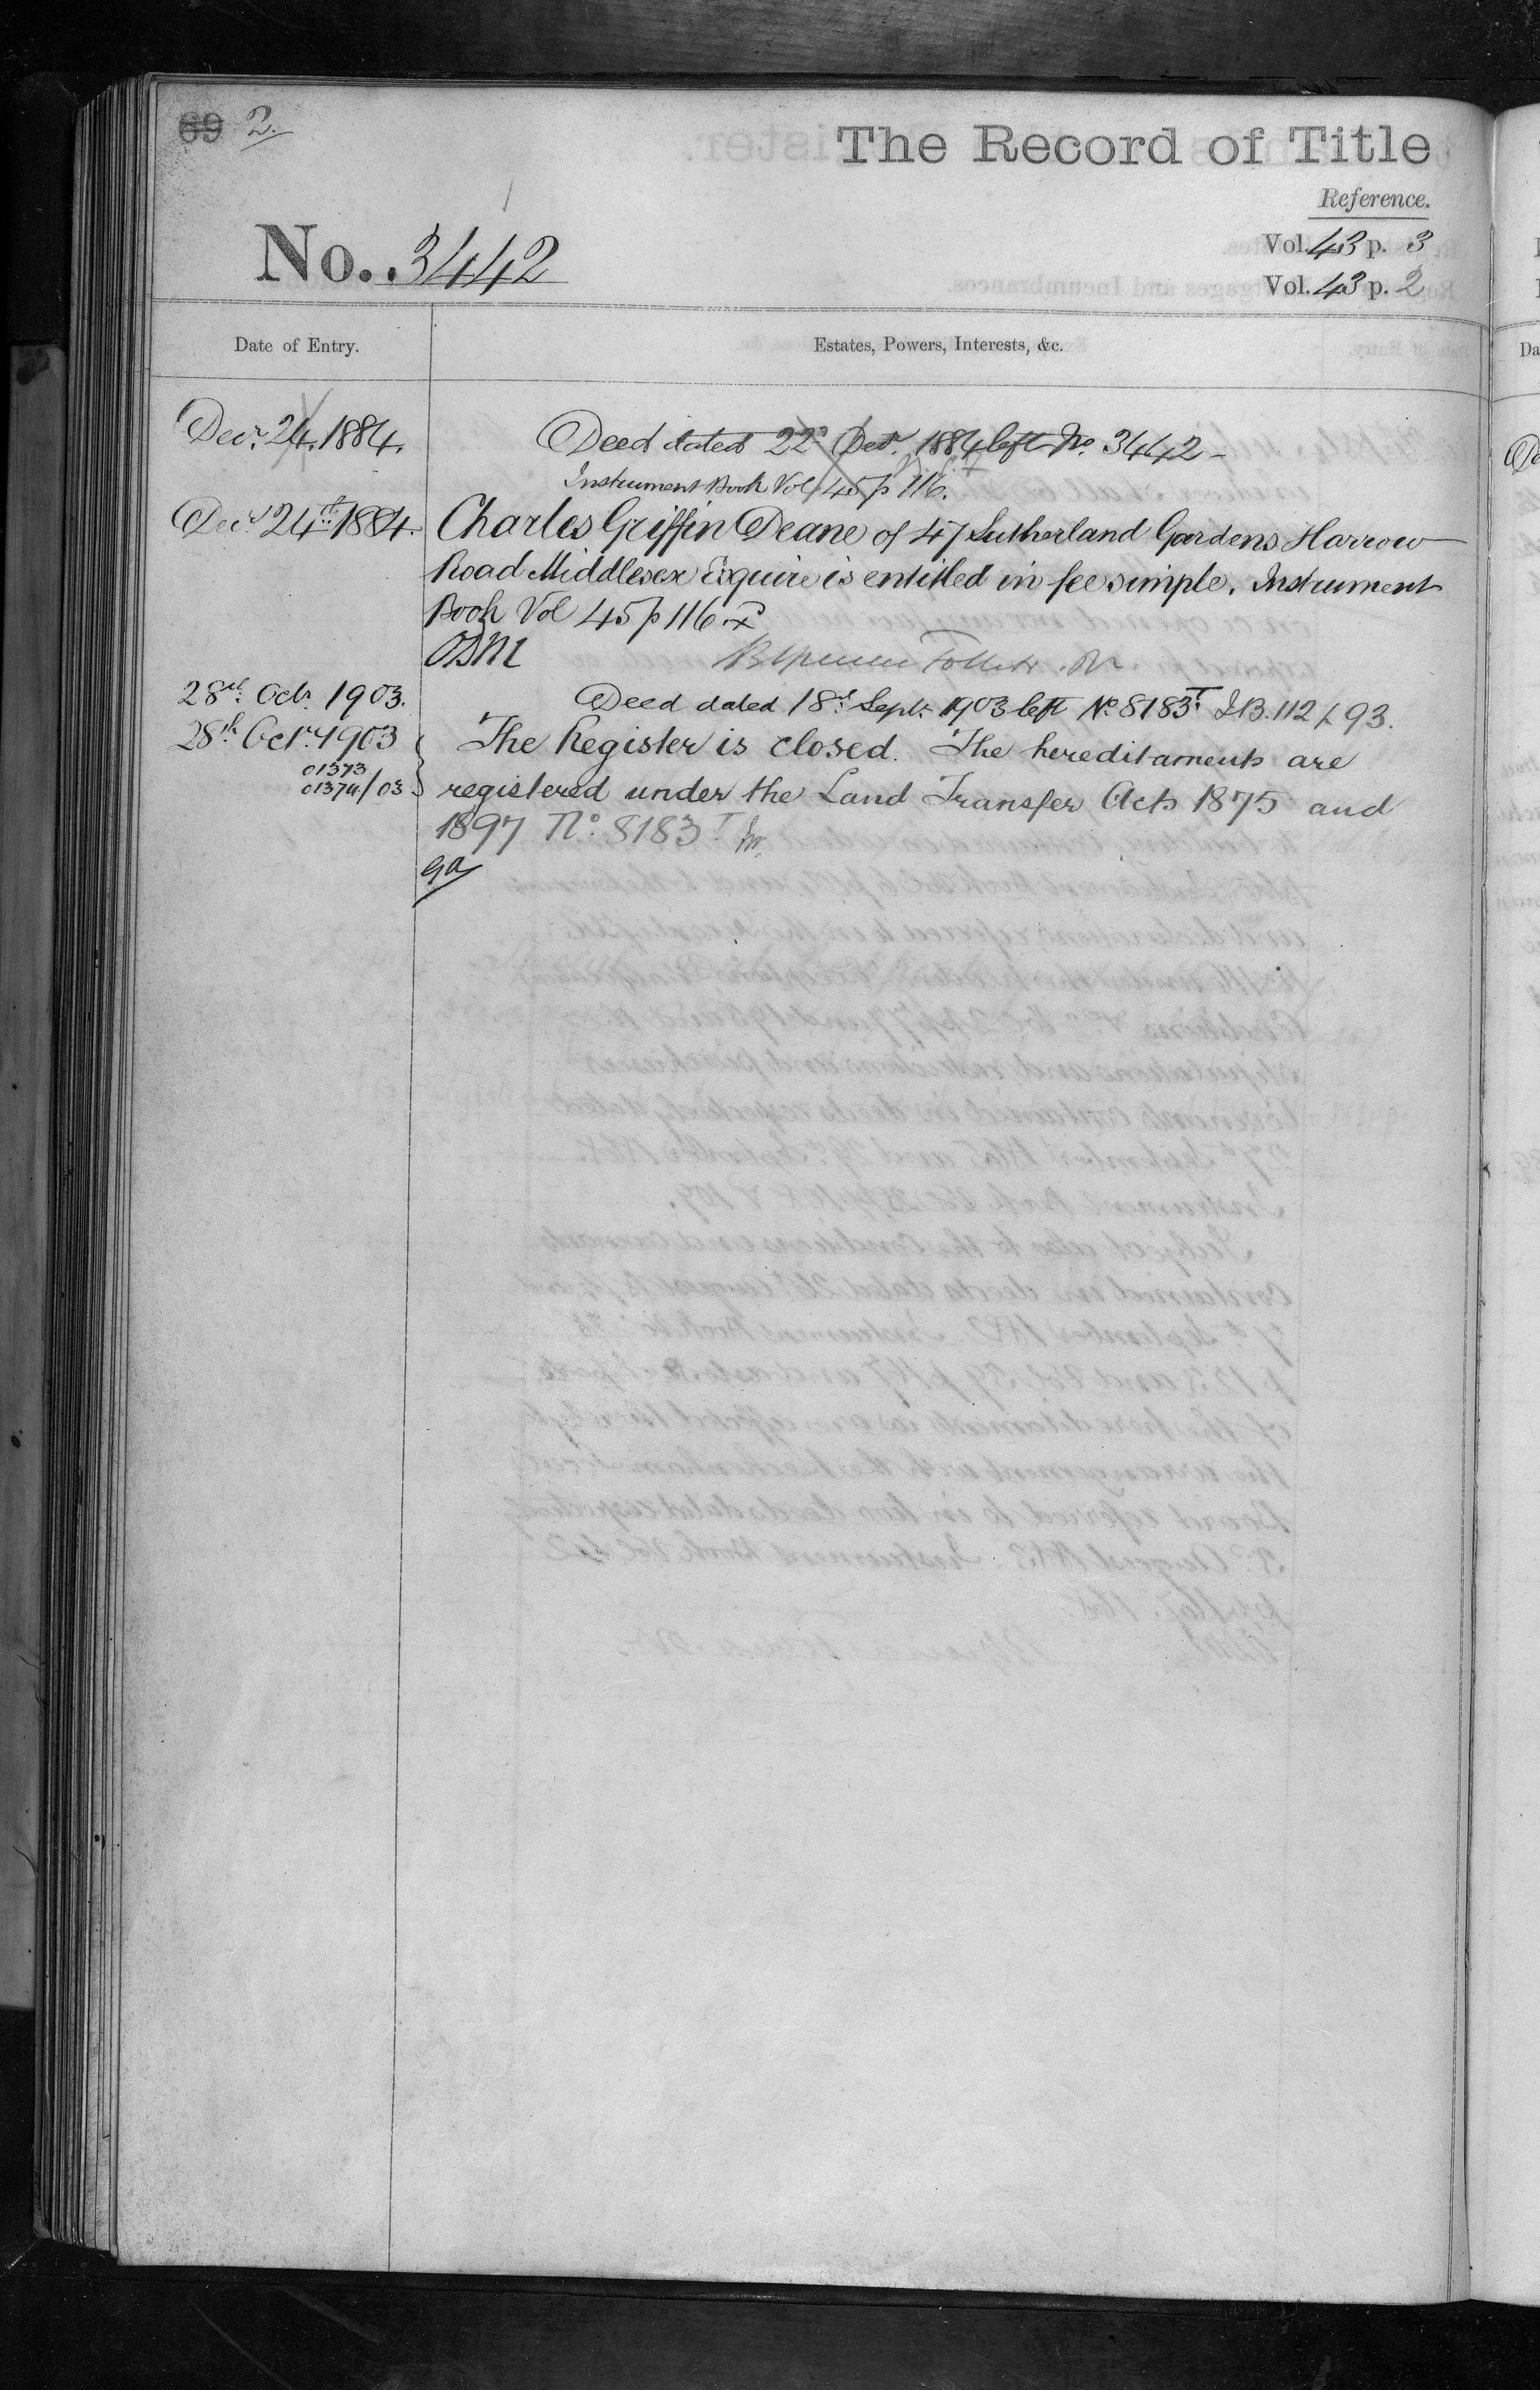 69 2.
The Record of Title
Reference.
No. 3442
Vol. 43 p. 3
Vol. 43 p. 2
Date of Entry.
Estates, Powers, Interests, &c.
Decr. 24. 1884.
Deed dated 22d Decr. 1884 left No. 3442
Instrument Book Vol 45 p 116.
Decr 24th 1884.
Charles Griffin Deane of 47 Sutherland Gardens Harrow
Road Middlesex Esquire is entitled in fee simple. Instrument
Book Vol 45 p 116
28th Octr. 1903.
Deed dated 18th Sept. 1903 left No. 8183T I.B. 112 / 93.
28th Octr. 1903
01373
01374/03
The Register is closed. The hereditaments are
registered under the Land Transfer Acts 1875 and
1897 No. 8183T